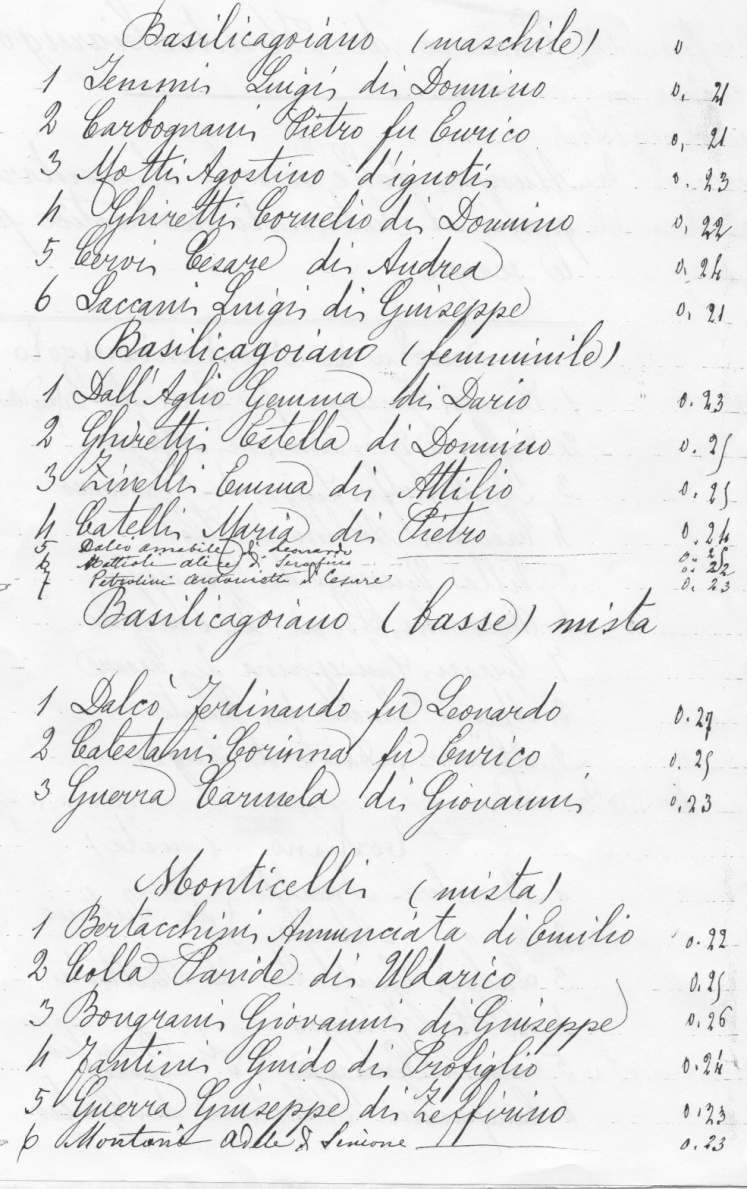 Basilicagoiano (maschile) 0
1 Jemmi Luigi di Domnino 0. 21
2 Carbognani Pietro fu Enrico 0. 21
3 Motti Agostino d'ignoti 0. 23
4 Ghiretti Cornelio di Domnino 0. 22
5 Cervi Cesare di Andrea 0. 24
6 Saccani Luigi di Giuseppe 0. 21
Basilicagoiano (femminile)
1 Dall'Aglio Gemma di Dario 0. 23
2 Ghiretti Estella di Domnino 0. 25
3 Zinelli Emma di Attilio 0. 25
4 Catelli Maria di Pietro 0. 24
5 Dalcò amabile di Leonardo 0. 25
6 Mattioli alice di Serafino 0. 22
7 Petrolini antonietta di Cesare 0. 23
Basilicagoiano (basse) mista
1 Dalcò Ferdinando fu Leonardo 0. 27
2 Calestani Corinna fu Enrico 0. 25
3 Guerra Carmela di Giovanni 0. 23
Monticelli (mista)
1 Bertacchini Annunciata di Emilio 0. 22
2 Colla Paride di Uldarico 0. 25
3 Bongrani Giovanni di Giuseppe 0. 26
4 Fantini Guido di Profiglio 0. 24
5 Guerra Giuseppe di Zeffirino 0. 23
6 Montani adele di Simone 0. 23